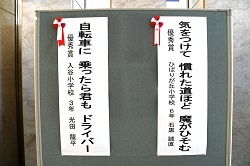 気をつけて 慣れた道ほど 魔がひそむ
優秀賞 ひばりが丘小学校 6年 石黒 誠直
自転車に 乗ったら君も ドライバー
優秀賞 入谷小学校 3年 光田 龍平